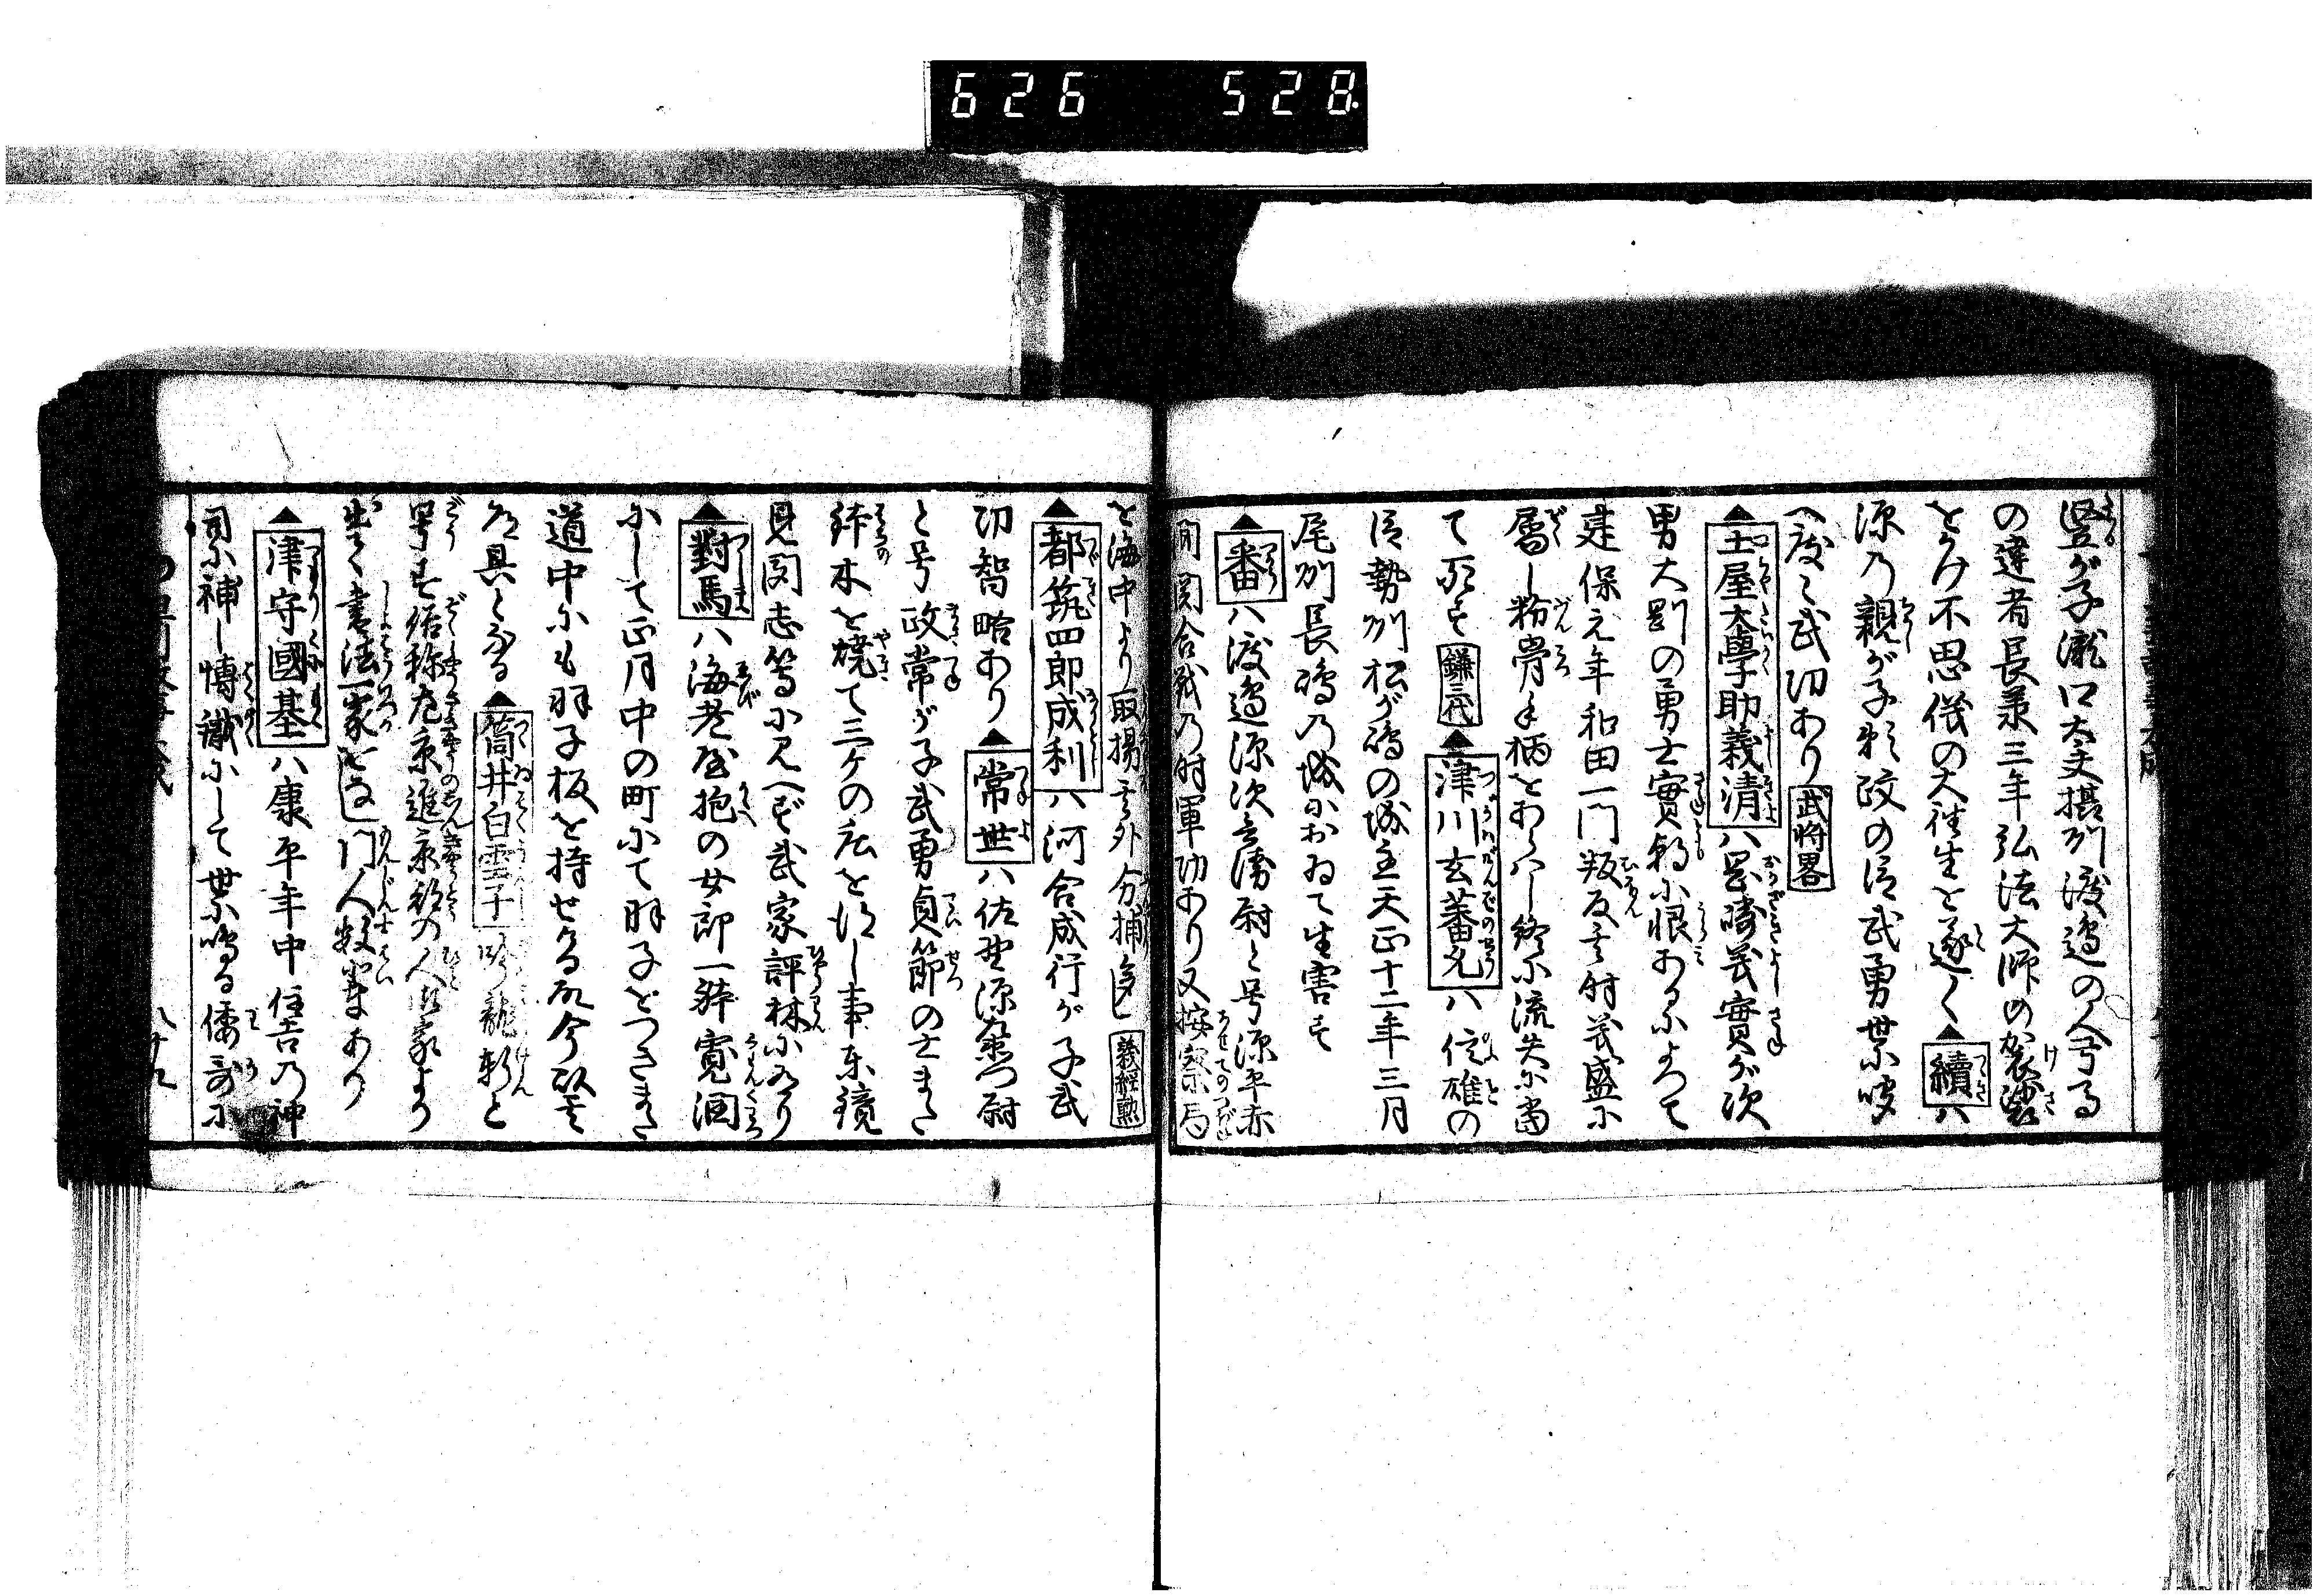 626 528
竪が子瀧口大夫摂州渡邉の人弓馬
の達者長承三年弘法大師の袈裟
をうけ不思儀の大往生を遂く▲續ハ
源乃親が子頼政の臣武勇世ニ
へ度々武功あり武将畧
▲土屋大學助義清ハ岡崎義實が次
男大剛の勇士實朝に恨あるによつて
建保元年和田一門叛反之時義盛に
屬し粉骨手柄をあらハし終に流矢に當
て死す鎌三代▲津川玄蕃允ハ信雄の
臣勢州松が嶋の城主天正十二年三月
尾州長嶋乃城におゐて生害す
▲番ハ渡邉源次兵衛尉と号源平赤
間関合戦乃時軍功あり又按察局
を海中より取揚其外分捕多し義經勲
▲都筑四郎成利ハ河合成行が子武
功智略あり▲常世ハ佐野源左衛門尉
と号政常が子武勇貞節の士また
鉢木を焼て三ケの庄を得し事東鏡
見聞志等に見へず武家評林にあり
▲對馬ハ海老屋抱の女郎一躰寛濶
にして正月中の町にて羽子をつきまた
道中にも羽子板を持せける故今以其
名具となる▲筒井白雲子吟龍軒と
号す俗称左京進京都の人御家より
出て書法一家をなし門人数輩あり
▲津守國基ハ康平年中住吉乃神
司に補し博識にして世に鳴る倭哥に